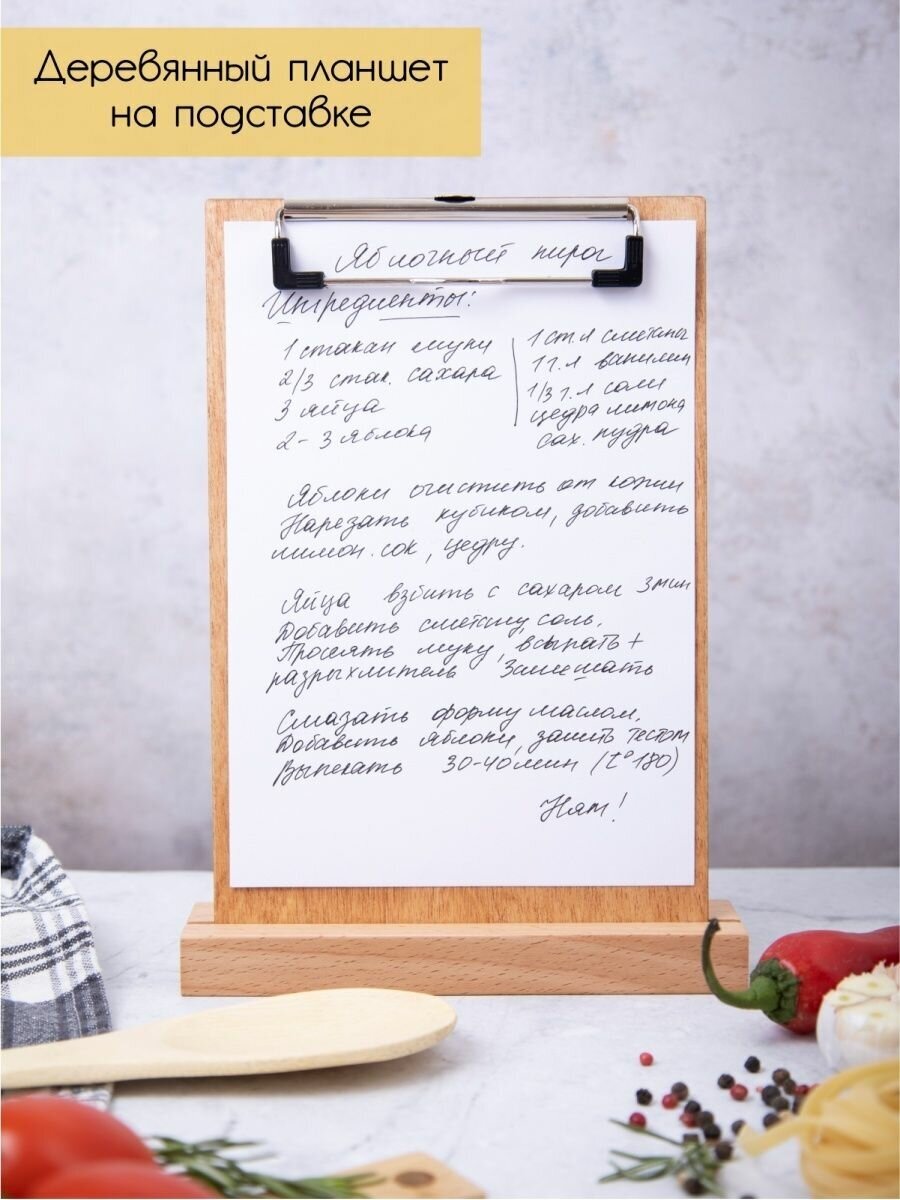 Деревянный планшет
на подставке
Яблочный пирог
Ингредиенты:
1 стакан муки
2/3 стак. сахара
3 яйца
2-3 яблока
1 ст.л сметаны
1 т.л ванилин
1/3 т.л соли
цедра лимона
сах. пудра
Яблоки очистить от кожи
Нарезать кубиком, добавить
лимон. сок, цедру.
Яйца взбить с сахаром 3 мин
Добавить сметану, соль.
Просеять муку, всыпать +
разрыхлитель Замешать
Смазать форму маслом.
Добавить яблоки, залить тестом
Выпекать 30-40 мин (t° 180)
Ням!